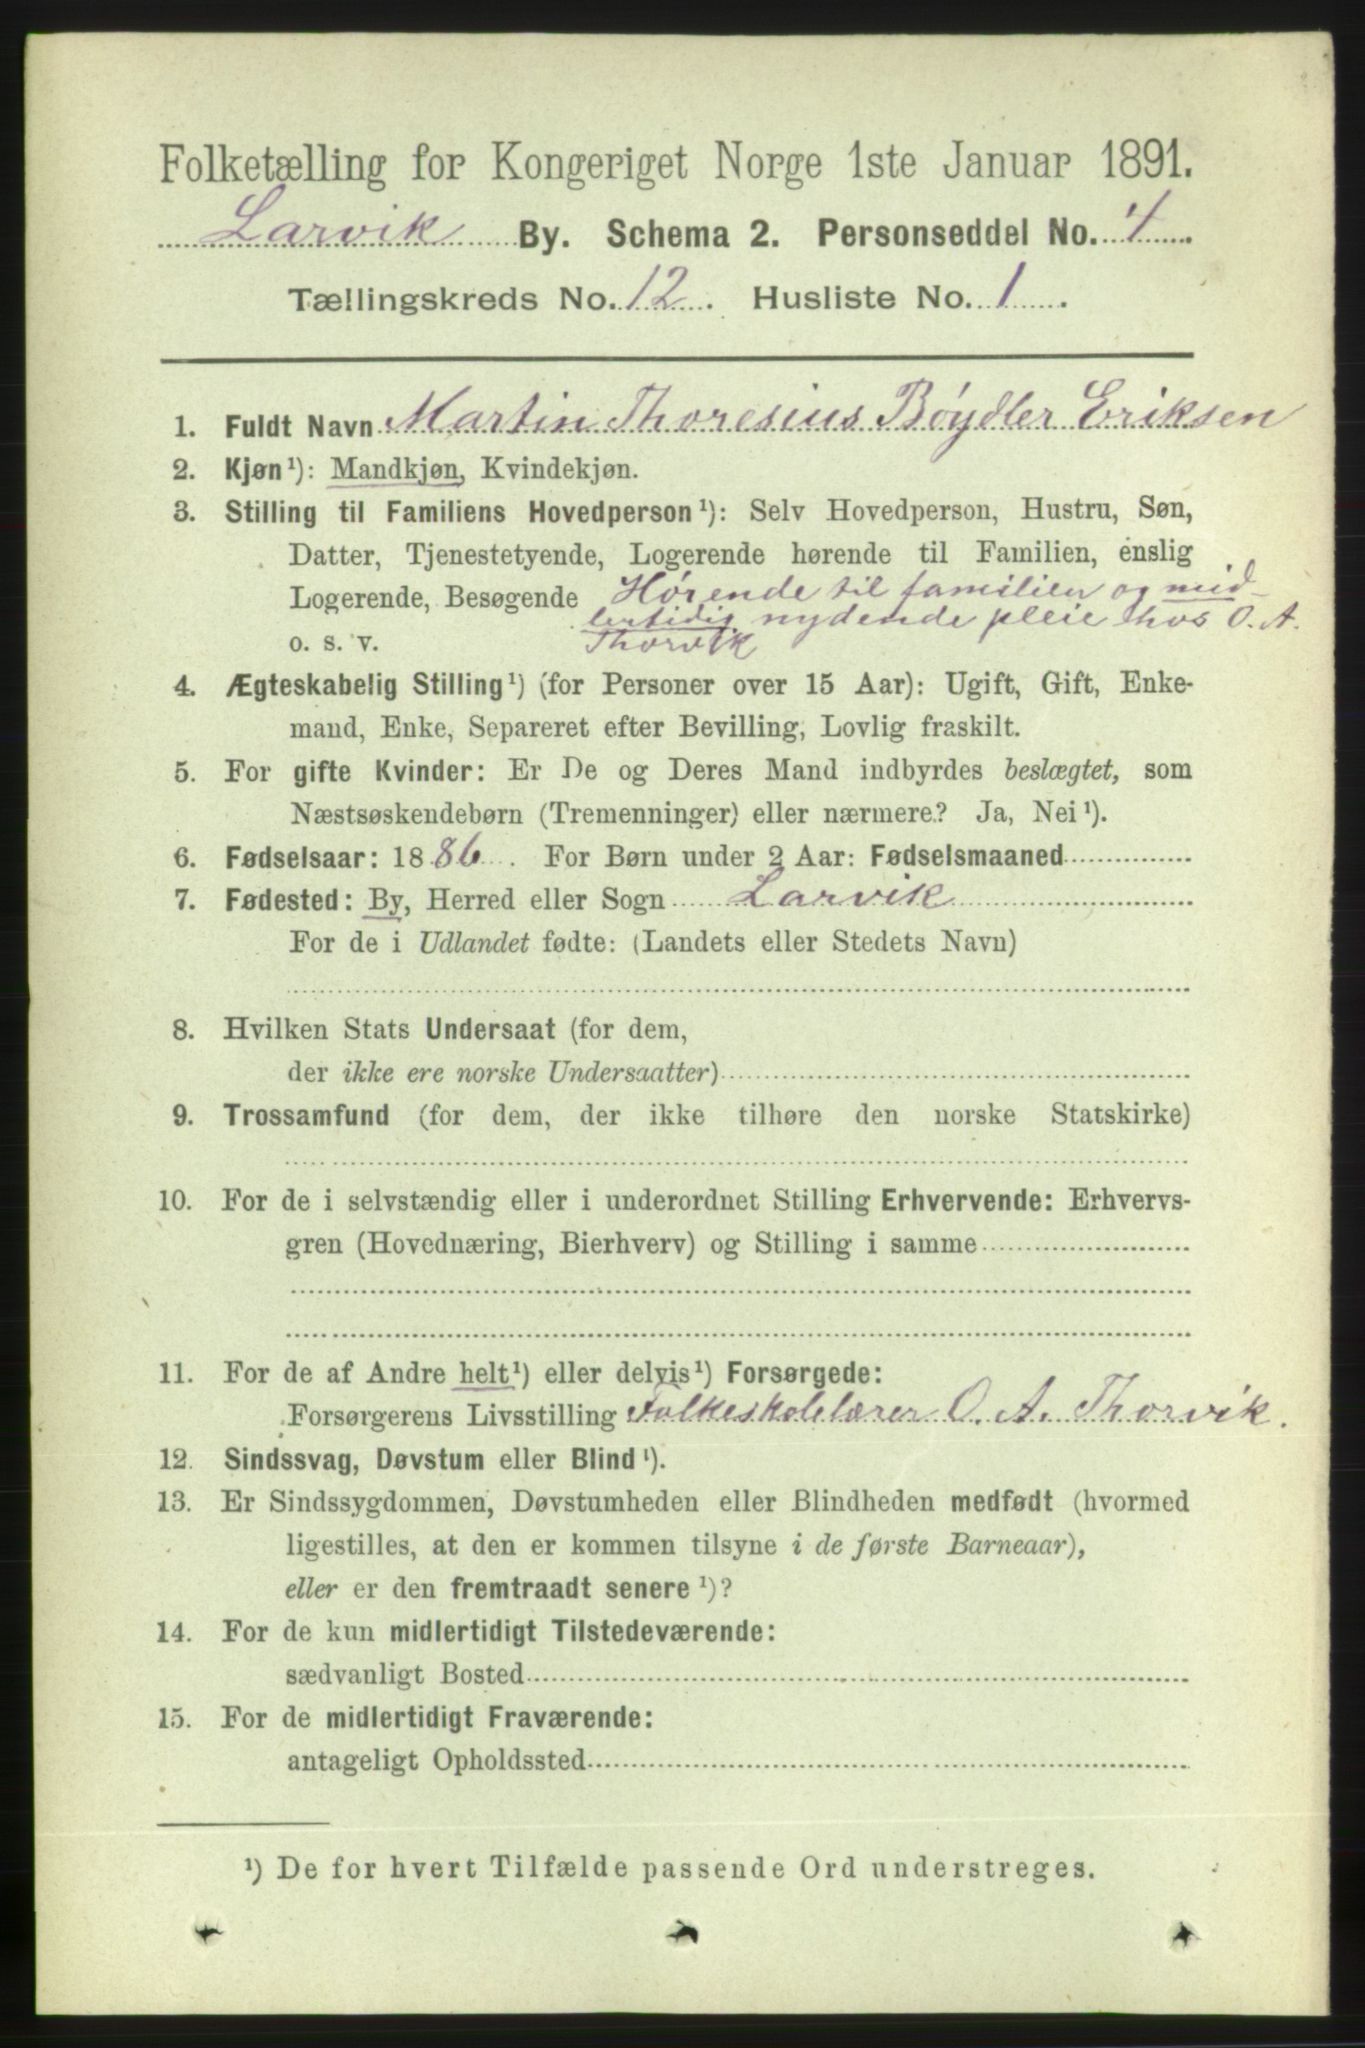 Folketælling for Kongeriget Norge 1ste Januar 1891.
Larvik By. Schema 2. Personseddel No. 4.
Tællingskreds No. 12. Husliste No. 1.
1. Fuldt Navn Martin Thoresius Bøydler Eriksen
2. Kjøn¹): Mandkjøn, Kvindekjøn.
3. Stilling til Familiens Hovedperson¹): Selv Hovedperson, Hustru, Søn,
Datter, Tjenestetyende, Logerende hørende til Familien, enslig
Logerende, Besøgende Hørende til familien og mid-
lertidig nydende pleie hos O. A.
o. s. v. Thorvik
4. Ægteskabelig Stilling¹) (for Personer over 15 Aar): Ugift, Gift, Enke-
mand, Enke, Separeret efter Bevilling, Lovlig fraskilt.
5. For gifte Kvinder: Er De og Deres Mand indbyrdes beslægtet, som
Næstsøskendebørn (Tremenninger) eller nærmere? Ja, Nei¹).
6. Fødselsaar: 1886. For Børn under 2 Aar: Fødselsmaaned
7. Fødested: By, Herred eller Sogn Larvik
For de i Udlandet fødte: (Landets eller Stedets Navn)
8. Hvilken Stats Undersaat (for dem,
der ikke ere norske Undersaatter)
9. Trossamfund (for dem, der ikke tilhøre den norske Statskirke)
10. For de i selvstændig eller i underordnet Stilling Erhvervende: Erhvervs-
gren (Hovednæring, Bierhverv) og Stilling i samme
11. For de af Andre helt¹) eller delvis¹) Forsørgede:
Forsørgerens Livsstilling Folkeskolelærer O. A. Thorvik.
12. Sindssvag, Døvstum eller Blind¹).
13. Er Sindssygdommen, Døvstumheden eller Blindheden medfødt (hvormed
ligestilles, at den er kommen tilsyne i de første Barneaar),
eller er den fremtraadt senere¹)?
14. For de kun midlertidigt Tilstedeværende:
sædvanligt Bosted
15. For de midlertidigt Fraværende:
antageligt Opholdssted
¹) De for hvert Tilfælde passende Ord understreges.